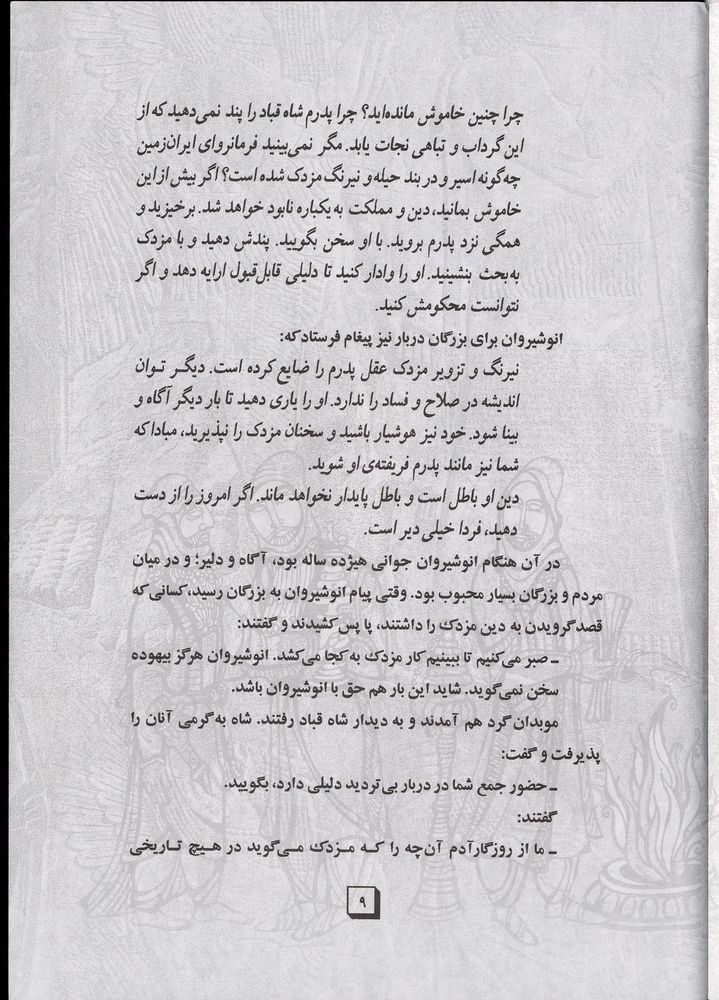 چرا چنین خاموش مانده‌اید؟ چرا پدرم شاه قباد را پند نمی‌دهید که از
این گرداب و تباهی نجات یابد. مگر نمی‌بینید فرمانروای ایران‌زمین
چه‌گونه اسیر و در بند حیله و نیرنگ مزدک شده است؟ اگر بیش از این
خاموش بمانید، دین و مملکت به یکباره نابود خواهد شد. برخیزید و
همگی نزد پدرم بروید. با او سخن بگویید. پندش دهید و با مزدک
به‌بحث بنشینید. او را وادار کنید تا دلیلی قابل‌قبول ارایه دهد و اگر
نتوانست محکومش کنید.
انوشیروان برای بزرگان دربار نیز پیغام فرستاد که:
نیرنگ و تزویر مزدک عقل پدرم را ضایع کرده است. دیگر توان
اندیشه در صلاح و فساد را ندارد. او را یاری دهید تا بار دیگر آگاه و
بینا شود. خود نیز هوشیار باشید و سخنان مزدک را نپذیرید، مبادا که
شما نیز مانند پدرم فریفته‌ی او شوید.
دین او باطل است و باطل پایدار نخواهد ماند. اگر امروز را از دست
دهید، فردا خیلی دیر است.
در آن هنگام انوشیروان جوانی هیژده ساله بود، آگاه و دلیر؛ و در میان
مردم و بزرگان بسیار محبوب بود. وقتی پیام انوشیروان به بزرگان رسید، کسانی که
قصد گرویدن به دین مزدک را داشتند، پا پس کشیدند و گفتند:
ـ صبر می‌کنیم تا ببینیم کار مزدک به کجا می‌کشد. انوشیروان هرگز بیهوده
سخن نمی‌گوید. شاید این بار هم حق با انوشیروان باشد.
موبدان گرد هم آمدند و به دیدار شاه قباد رفتند. شاه به‌گرمی آنان را
پذیرفت و گفت:
ـ حضور جمع شما در دربار بی‌تردید دلیلی دارد، بگویید.
گفتند:
ـ ما از روزگار آدم آن‌چه را که مزدک می‌گوید در هیچ تاریخی
۹